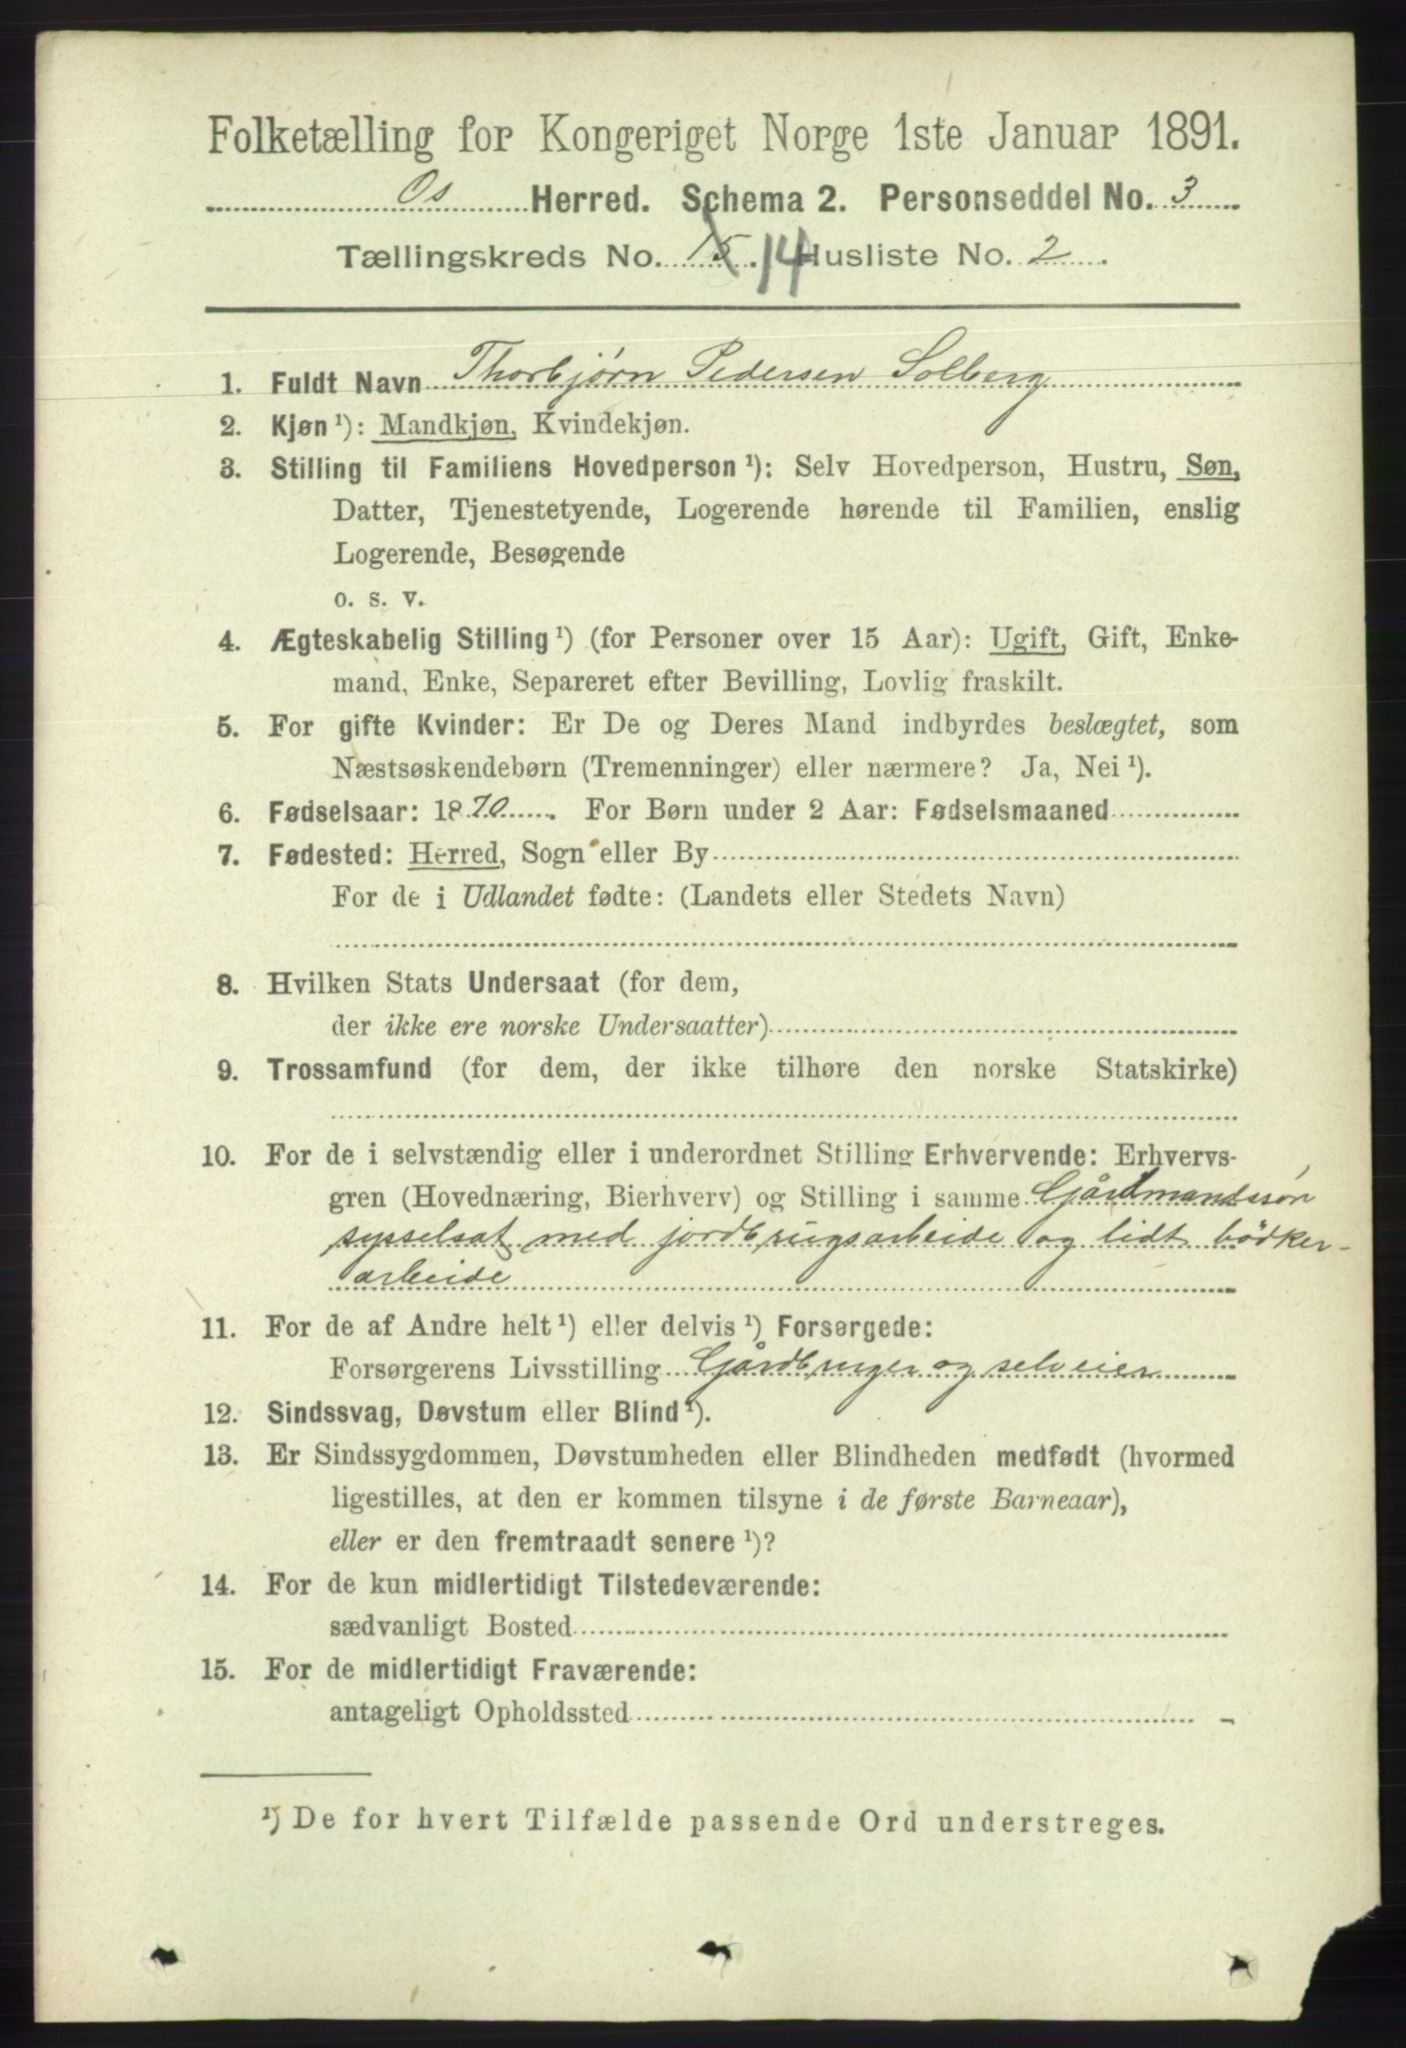 Folketælling for Kongeriget Norge 1ste Januar 1891.
Os Herred. Schema 2. Personseddel No. 3
Tællingskreds No. 15. 14 Husliste No. 2.
1. Fuldt Navn Thorbjørn Pedersen Solberg
2. Kjøn ¹): Mandkjøn, Kvindekjøn.
3. Stilling til Familiens Hovedperson ¹): Selv Hovedperson, Hustru, Søn,
Datter, Tjenestetyende, Logerende hørende til Familien, enslig
Logerende, Besøgende
o. s. v.
4. Ægteskabelig Stilling ¹) (for Personer over 15 Aar): Ugift, Gift, Enke-
mand, Enke, Separeret efter Bevilling, Lovlig fraskilt.
5. For gifte Kvinder: Er De og Deres Mand indbyrdes beslægtet, som
Næstsøskendebørn (Tremenninger) eller nærmere? Ja, Nei ¹).
6. Fødselsaar: 1870. For Børn under 2 Aar: Fødselsmaaned
7. Fødested: Herred, Sogn eller By
For de i Udlandet fødte: (Landets eller Stedets Navn)
8. Hvilken Stats Undersaat (for dem,
der ikke ere norske Undersaatter)
9. Trossamfund (for dem, der ikke tilhøre den norske Statskirke)
10. For de i selvstændig eller i underordnet Stilling Erhvervende: Erhvervs-
gren (Hovednæring, Bierhverv) og Stilling i samme Gårdmandssøn
sysselsat med jordbrugsarbeide og lidt bödker-
arbeide
11. For de af Andre helt ¹) eller delvis ¹) Forsørgede:
Forsørgerens Livsstilling Gårdbruger og selveier
12. Sindssvag, Døvstum eller Blind ¹).
13. Er Sindssygdommen, Døvstumheden eller Blindheden medfødt (hvormed
ligestilles, at den er kommen tilsyne i de første Barneaar),
eller er den fremtraadt senere ¹)?
14. For de kun midlertidigt Tilstedeværende:
sædvanligt Bosted
15. For de midlertidigt Fraværende:
antageligt Opholdssted
¹) De for hvert Tilfælde passende Ord understreges.